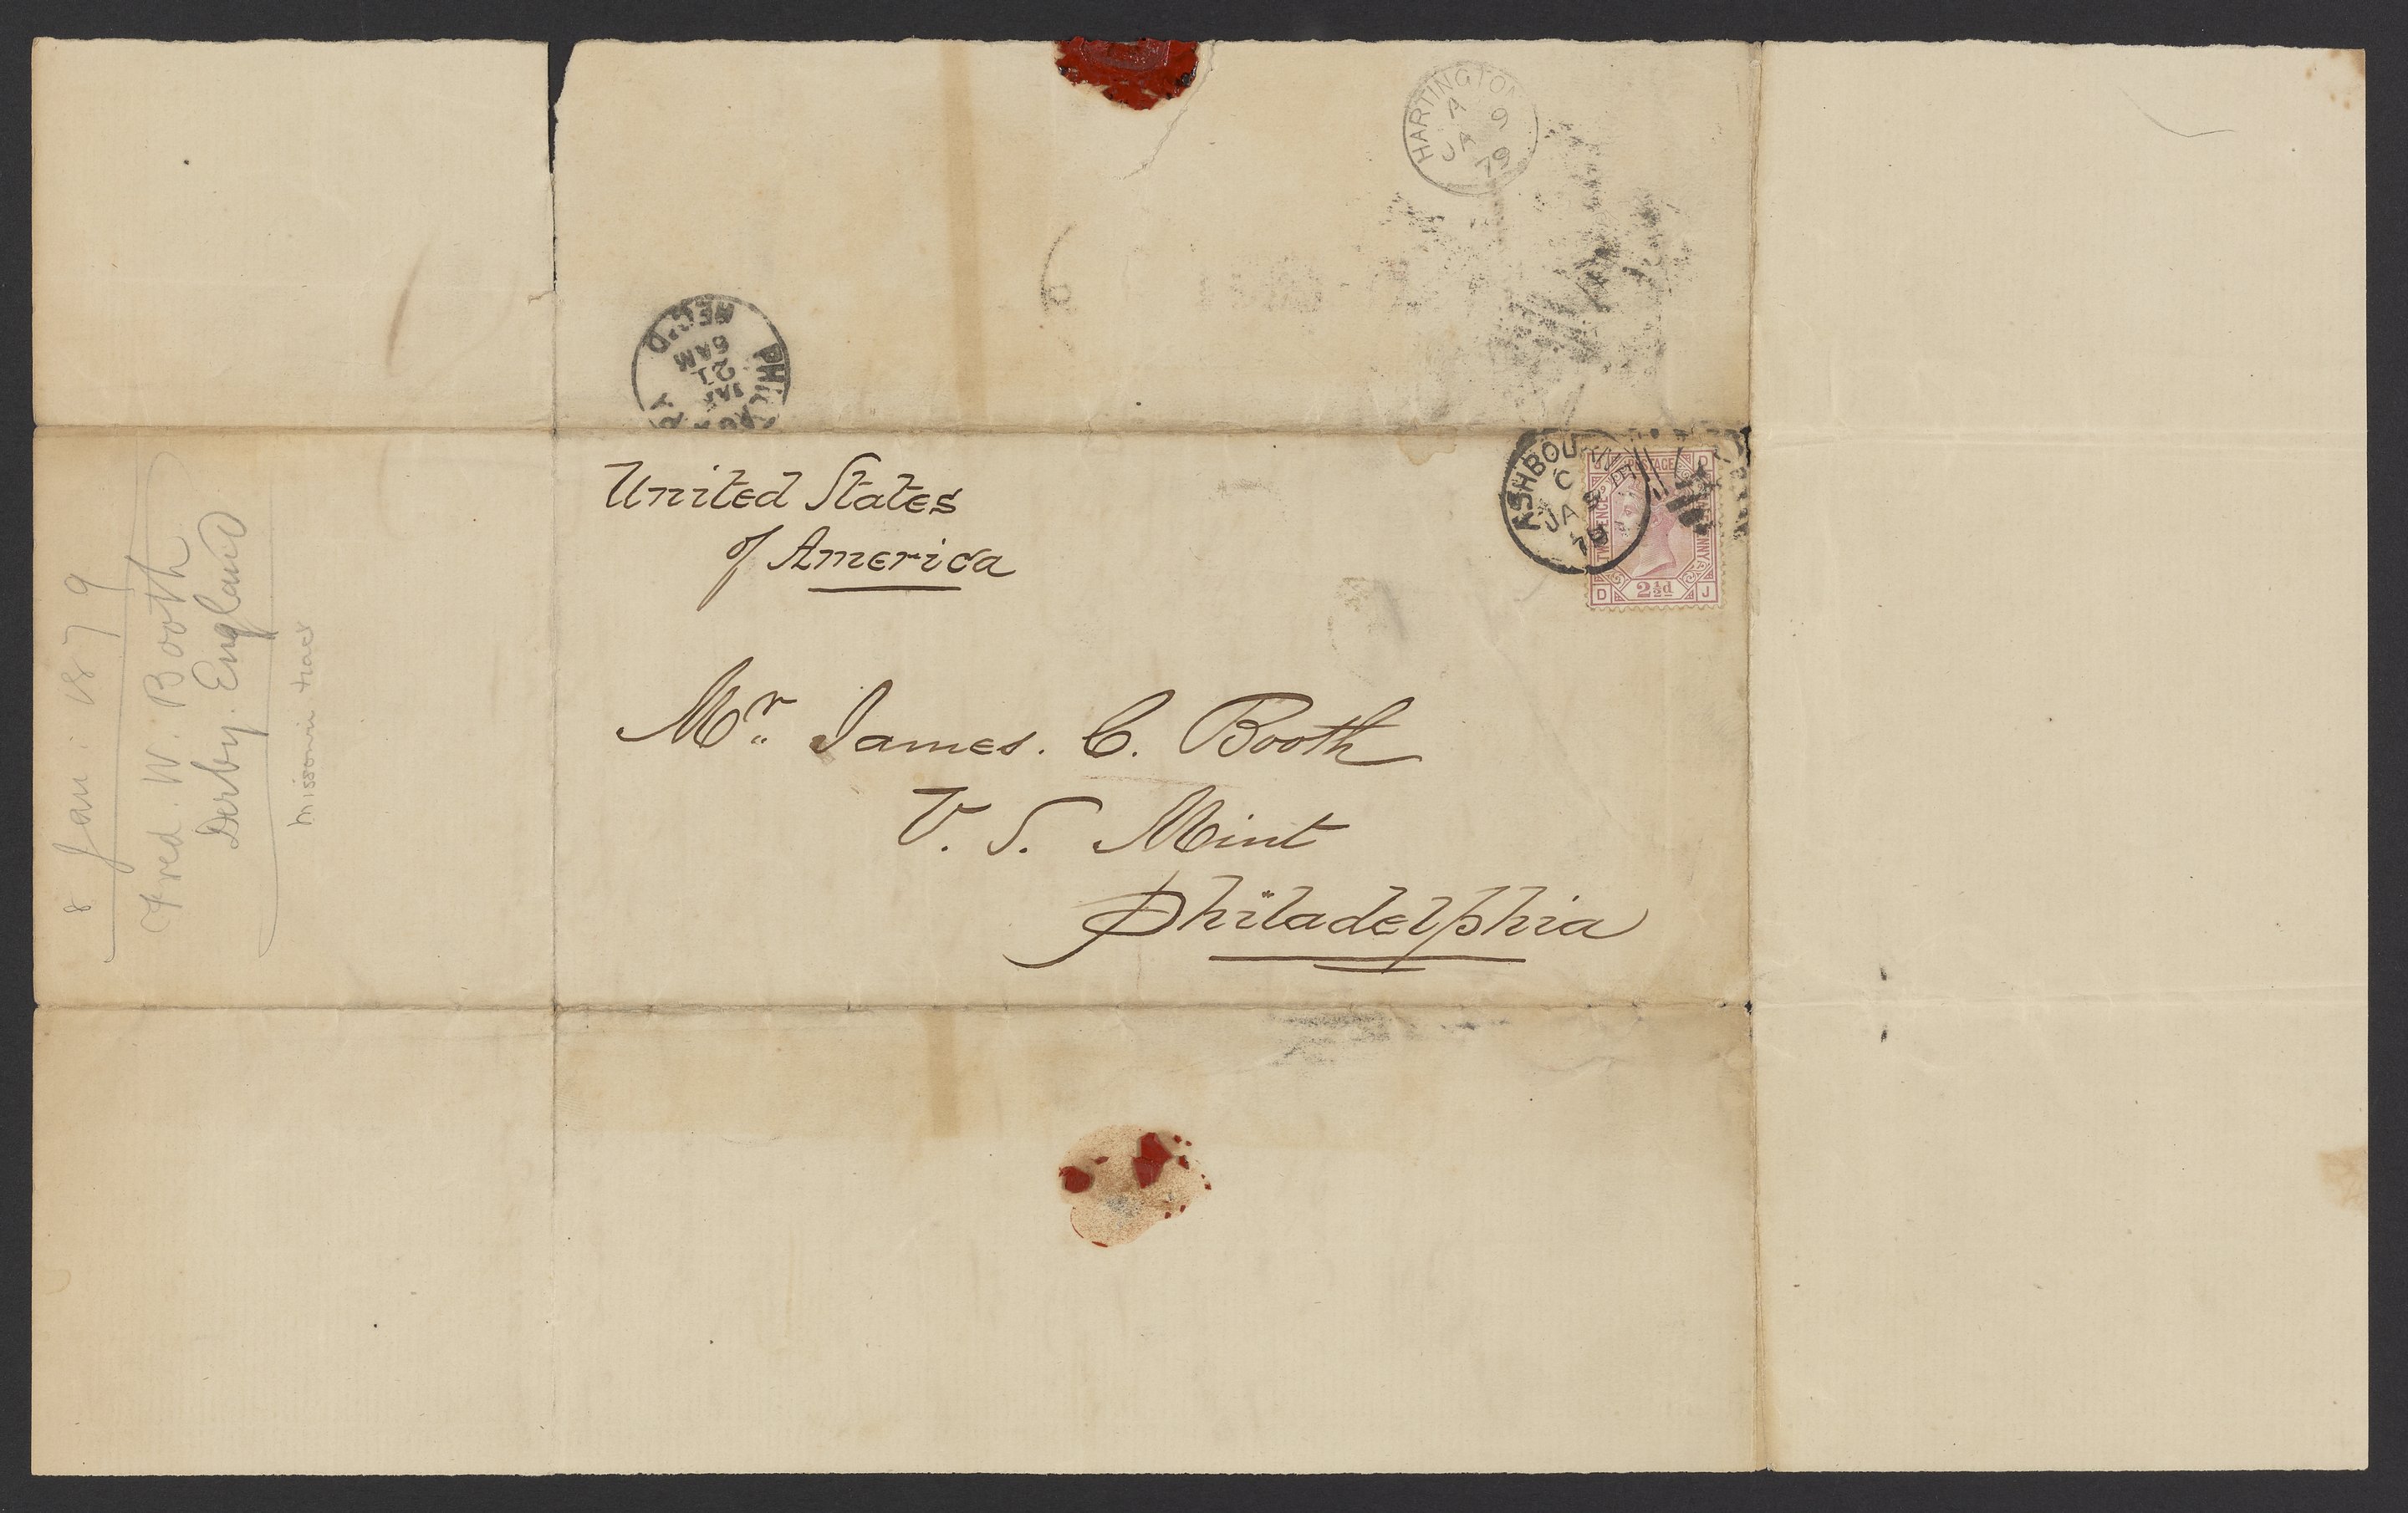 HARTINGTON
A
JA 9
79
REC'D
6AM
21
JAN
ASHBOURNE
C
JA 9
79
POSTAGE
D
D J
2½d
United States
of America
Mr. James. C. Booth
U. S. Mint
Philadelphia
8 Jan. 1879
Fred. W. Booth
Derby. England